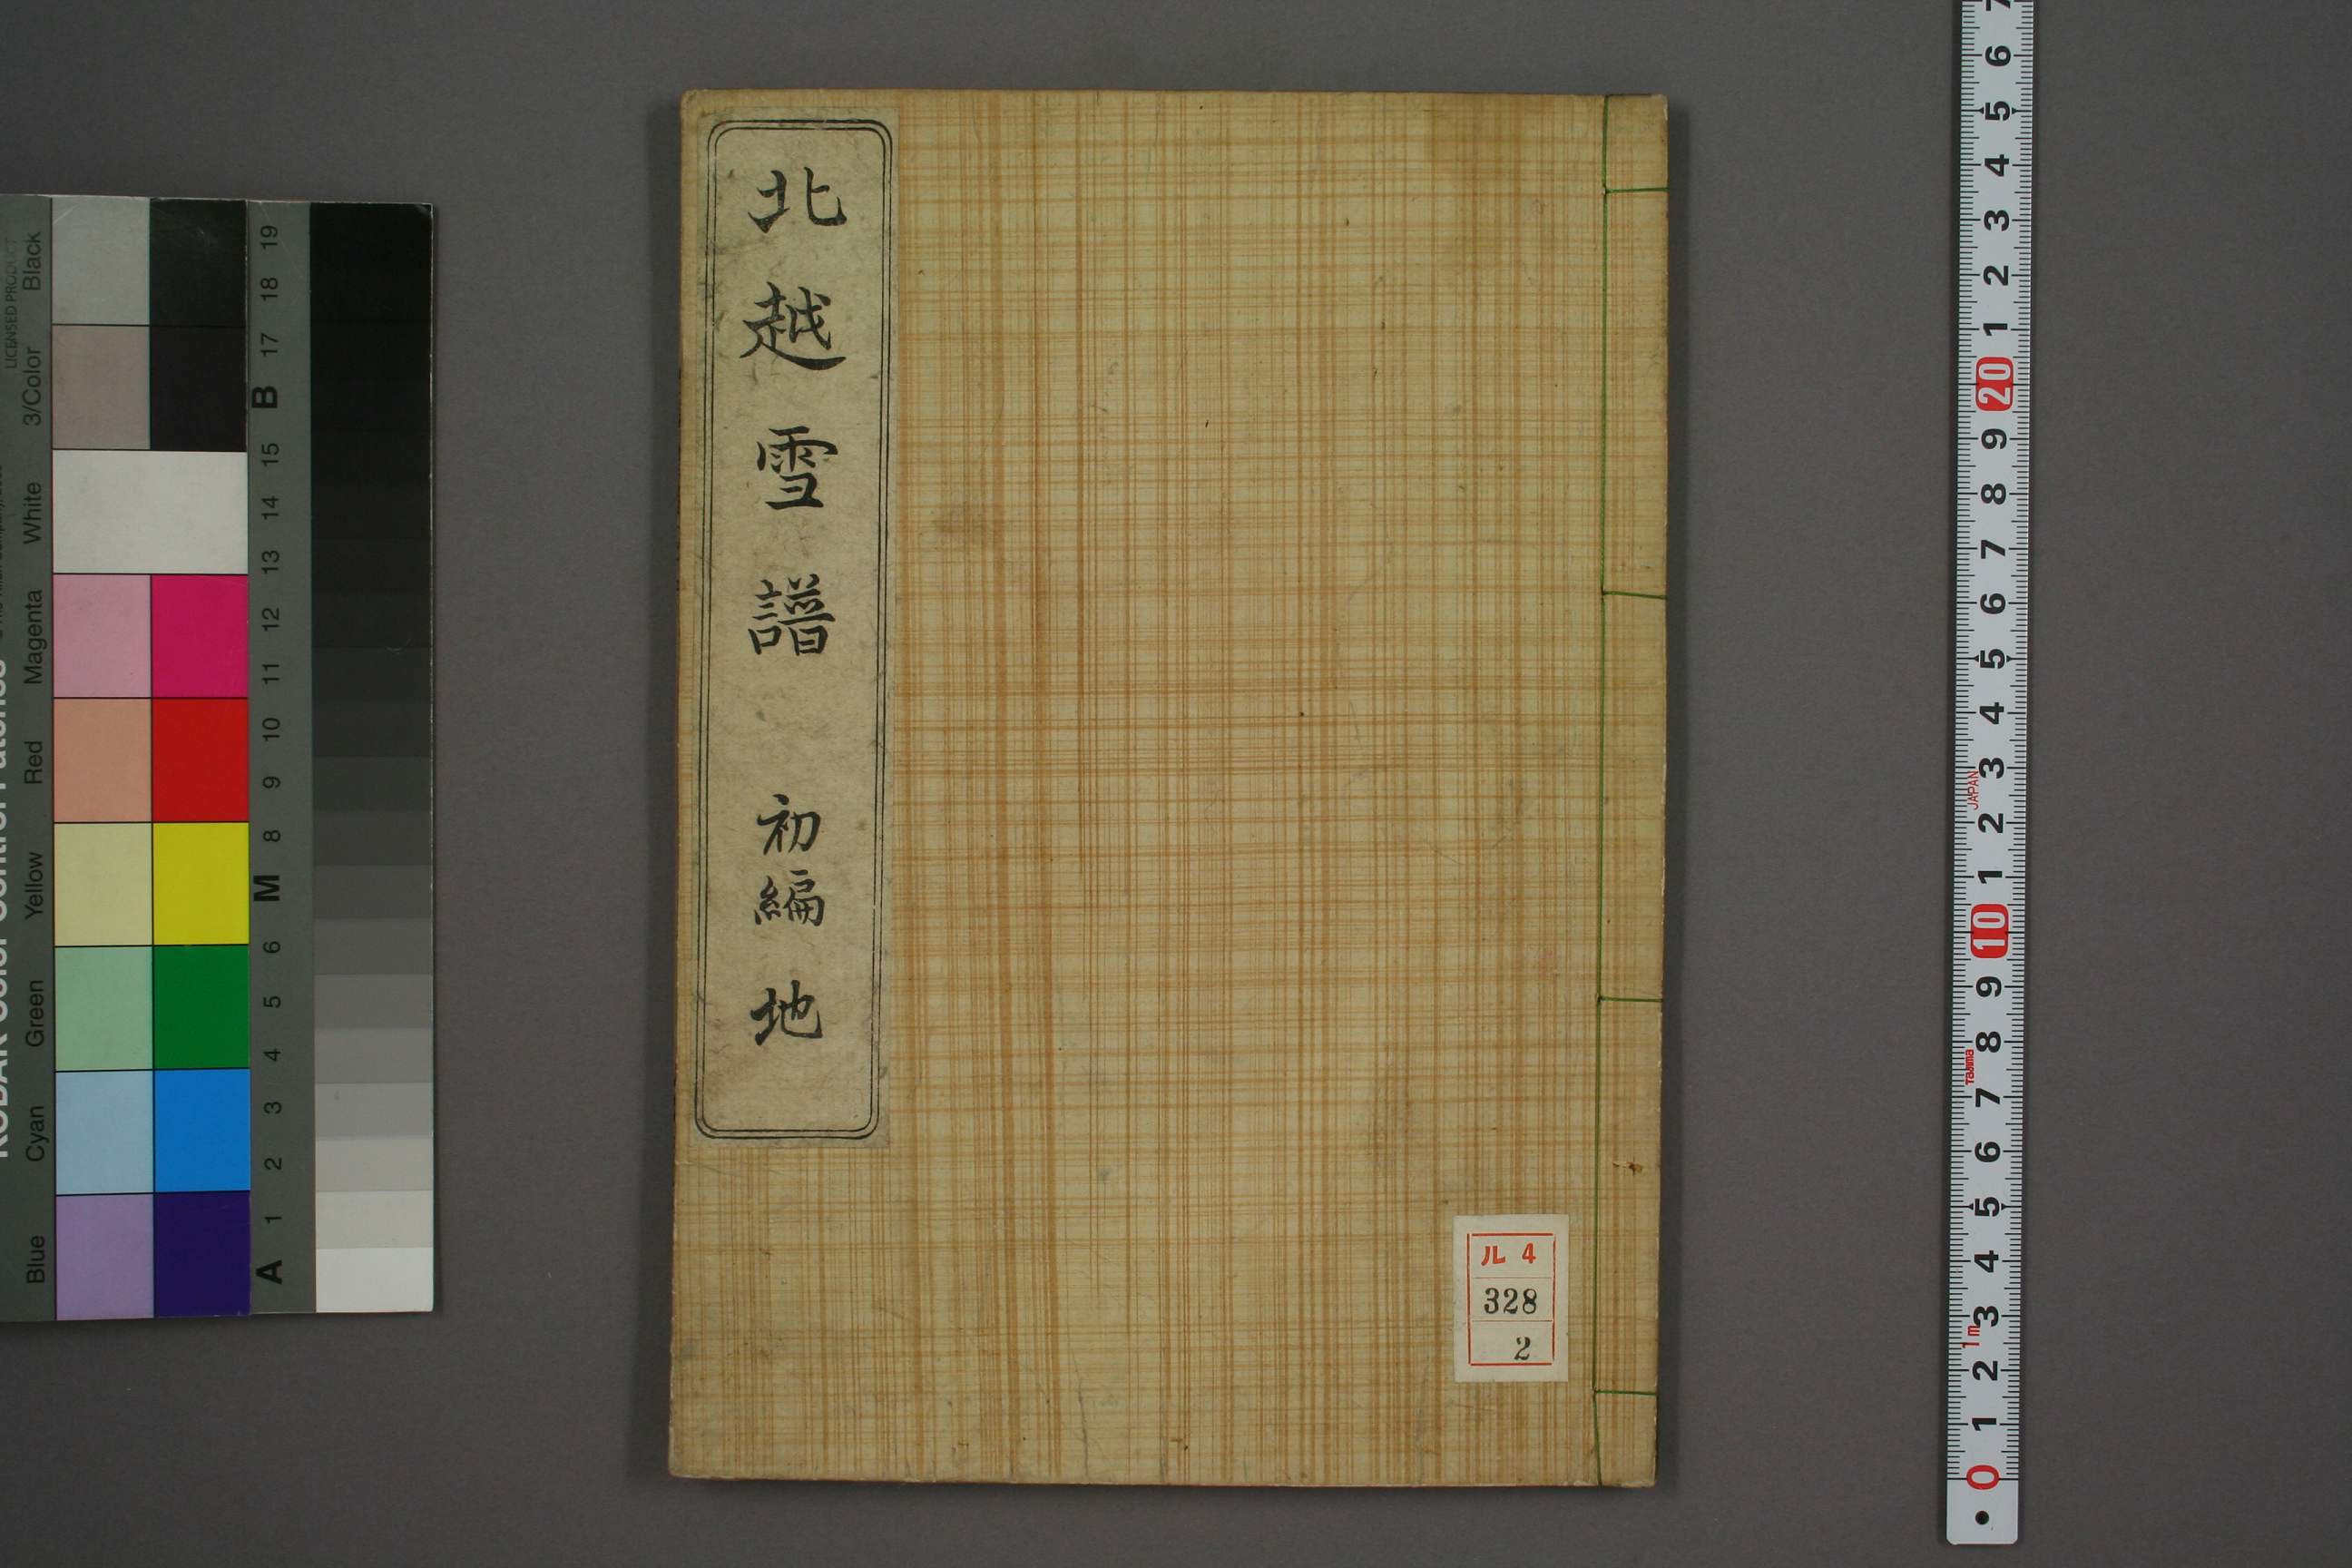 北越雪譜 初編 地
ル 4
328
2
LICENSED PRODUCT
Black
3/Color
White
Magenta
Red
Yellow
Green
Cyan
Blue
19
18
17
B
15
14
13
12
11
10
9
8
M
6
5
4
3
2
1
A
7
6
5
4
3
2
1
20
9
8
7
6
5
4
3
JAPAN
2
1
10
9
8
Tajima
7
6
5
4
3
1m
2
1
0